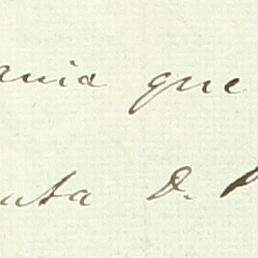 ania que
ata D.